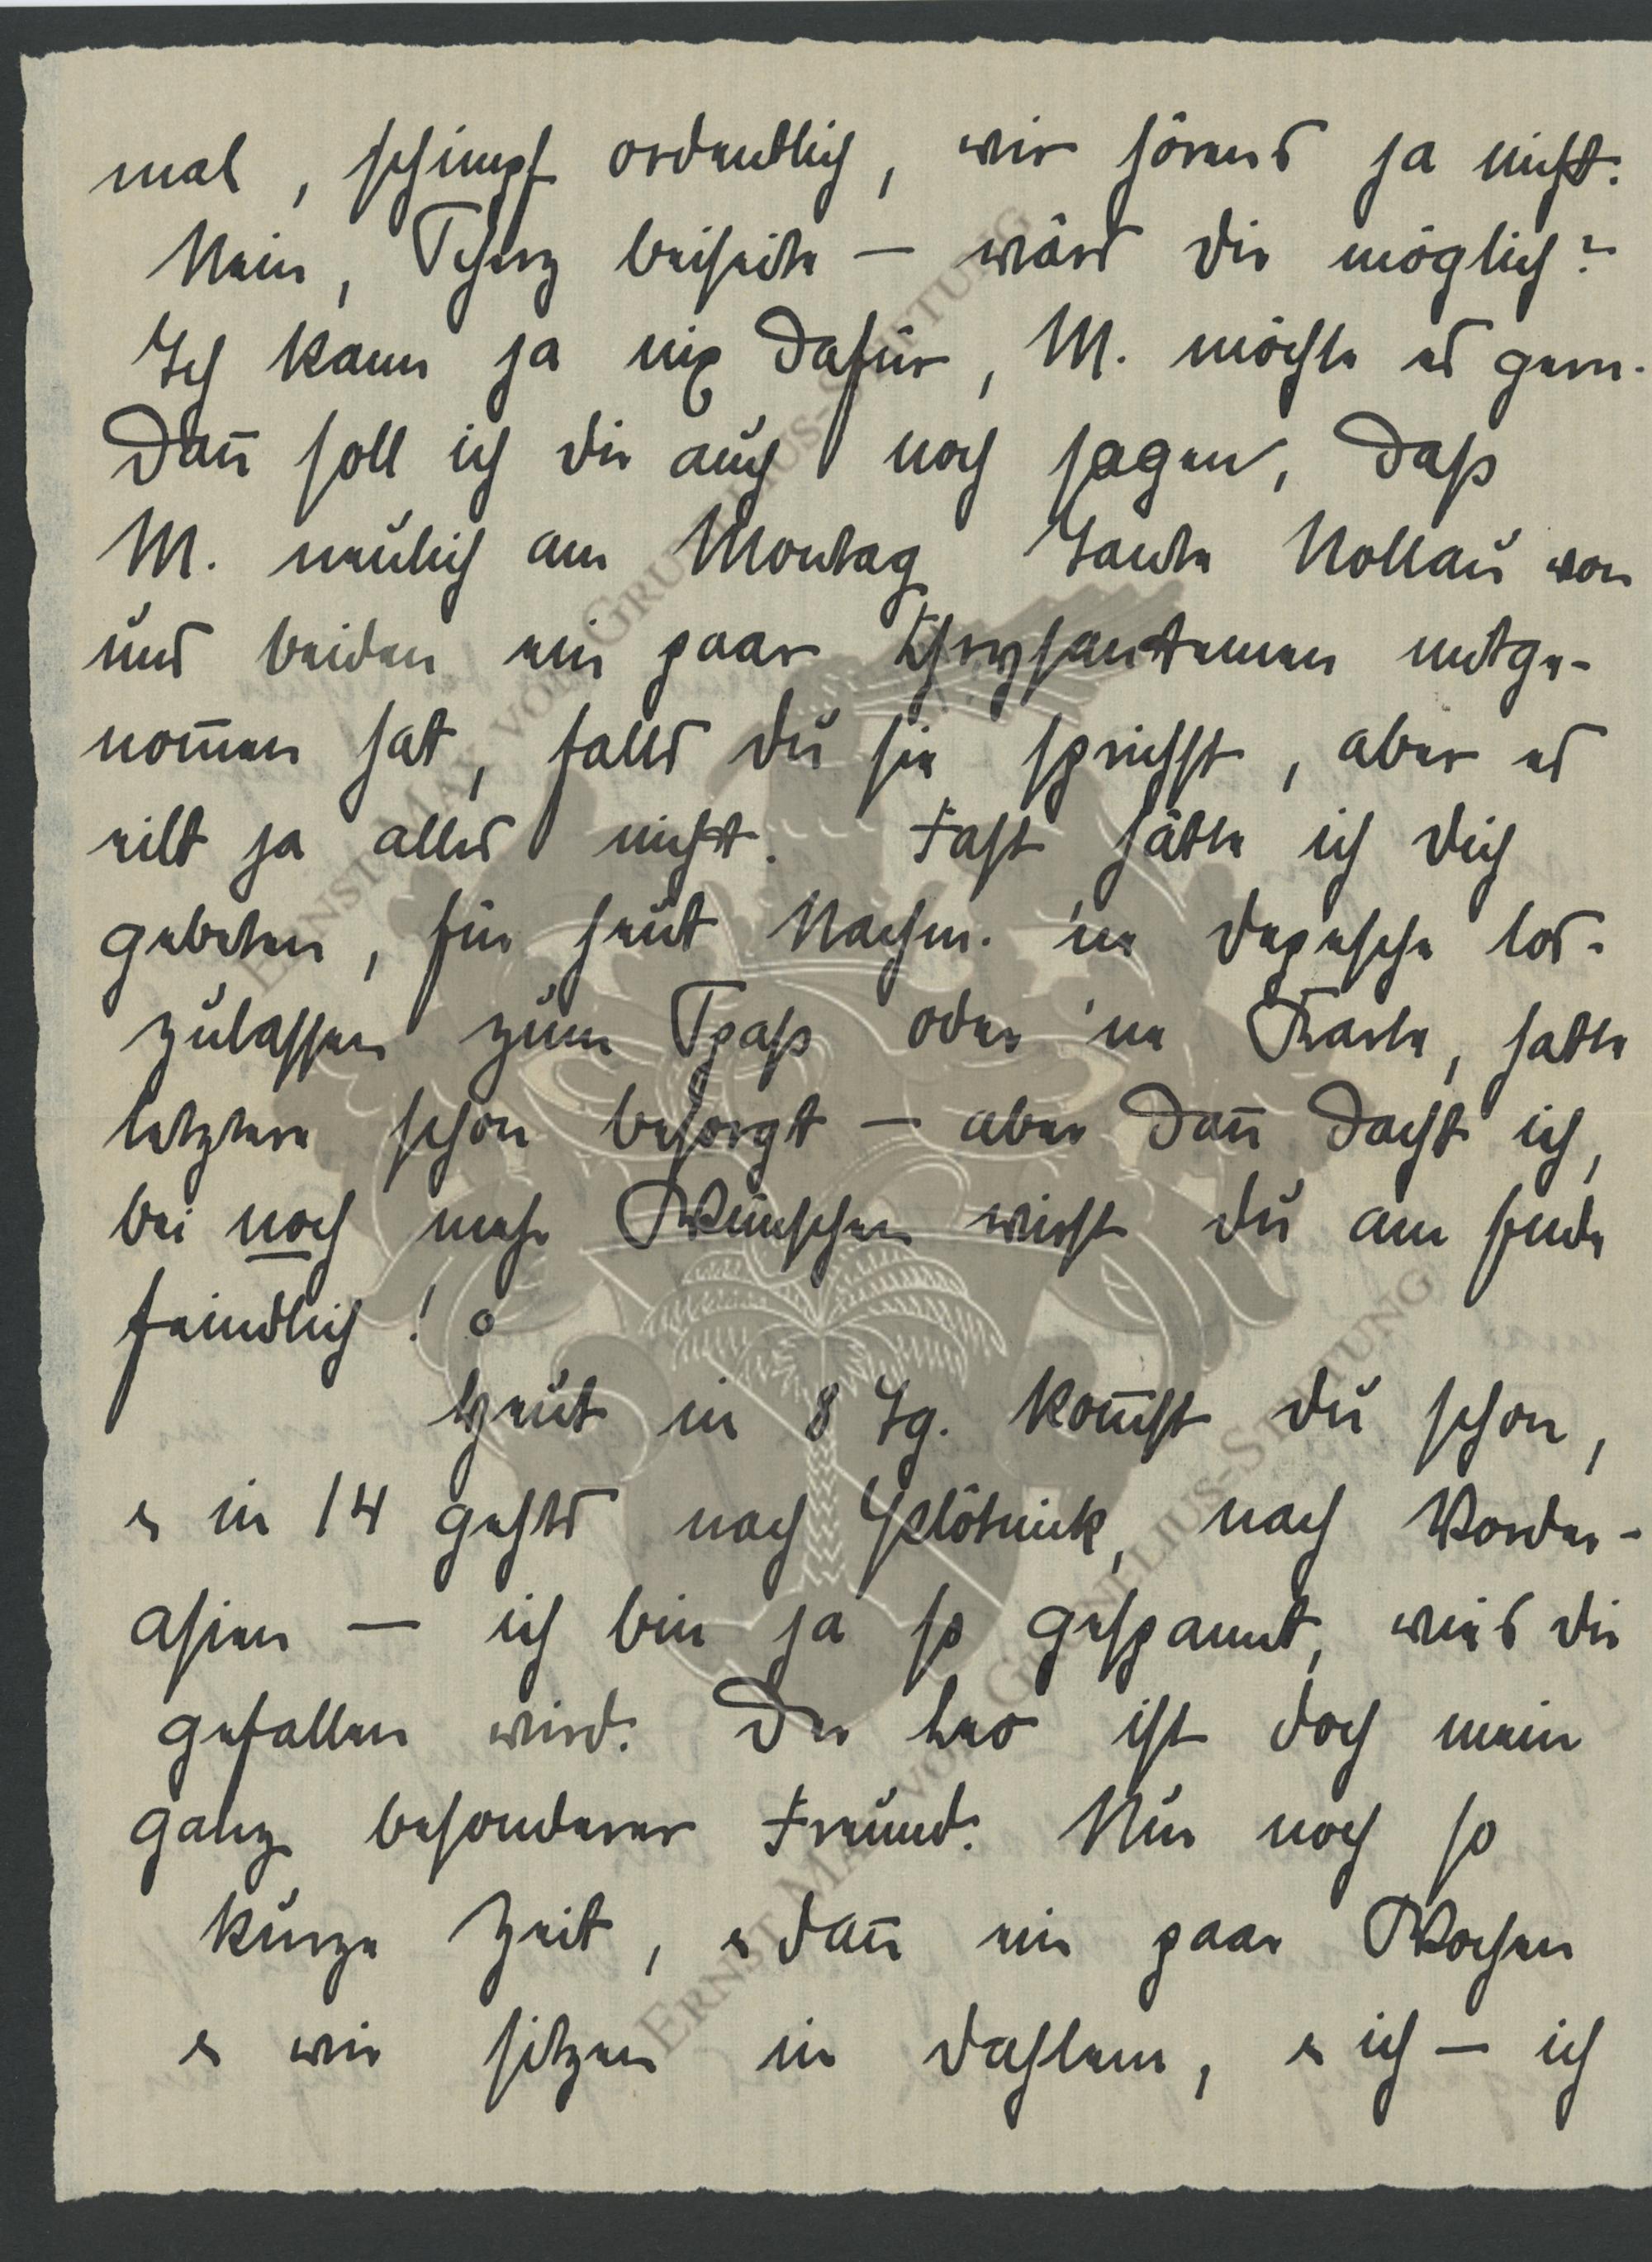 mal, schimpf ordentlich, wir hörens ja nicht.
Nein, Scherz beiseite – wärs dir möglich?
Ich kann ja nix dafür, M. möchte es gern.
Dan̄ soll ich dir auch noch sagen, daß
M. neulich am Montag Tante Nollau von
uns beiden ein paar Chrysantemen mitge-
nom̄en hat, falls du sie sprichst, aber es
eilt ja alles nicht. Fast hätte ich dich
gebeten, für heut Nachm. 'ne Depesche los-
zulassen zum Spaß oder 'ne Karte, hatte
letztere schon besorgt – aber dan̄ dacht ich,
bei noch mehr Wünschen wirst du am Ende
feindlich!
Heut in 8 Tg. kom̄st du schon,
& in 14 gehts nach Glötnick, nach Vorder-
asien – ich bin ja so gespannt, wies dir
gefallen wird. Der Leo ist doch mein
ganz besonderer Freund. Nur noch so
kurze Zeit, & dan̄ ein paar Wochen
& wir sitzen in Dahlem, & ich – ich
ERNST-MAX VON GRUNELIUS-STIFTUNG
ERNST MAX VON GRUNELIUS-STIFTUNG